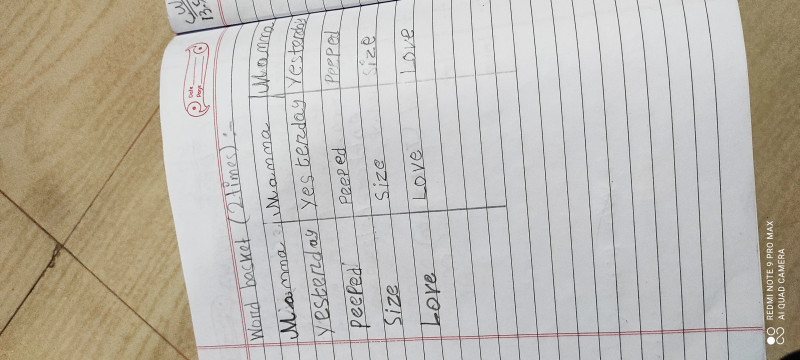 Date
Page
Word bocket (2 times) :-
Mianna Mianna Mianna
yesterday yesterday yesterday
peeped peeped peeped
Size Size Size
Love Love Love
REDMI NOTE 9 PRO MAX
AI QUAD CAMERA